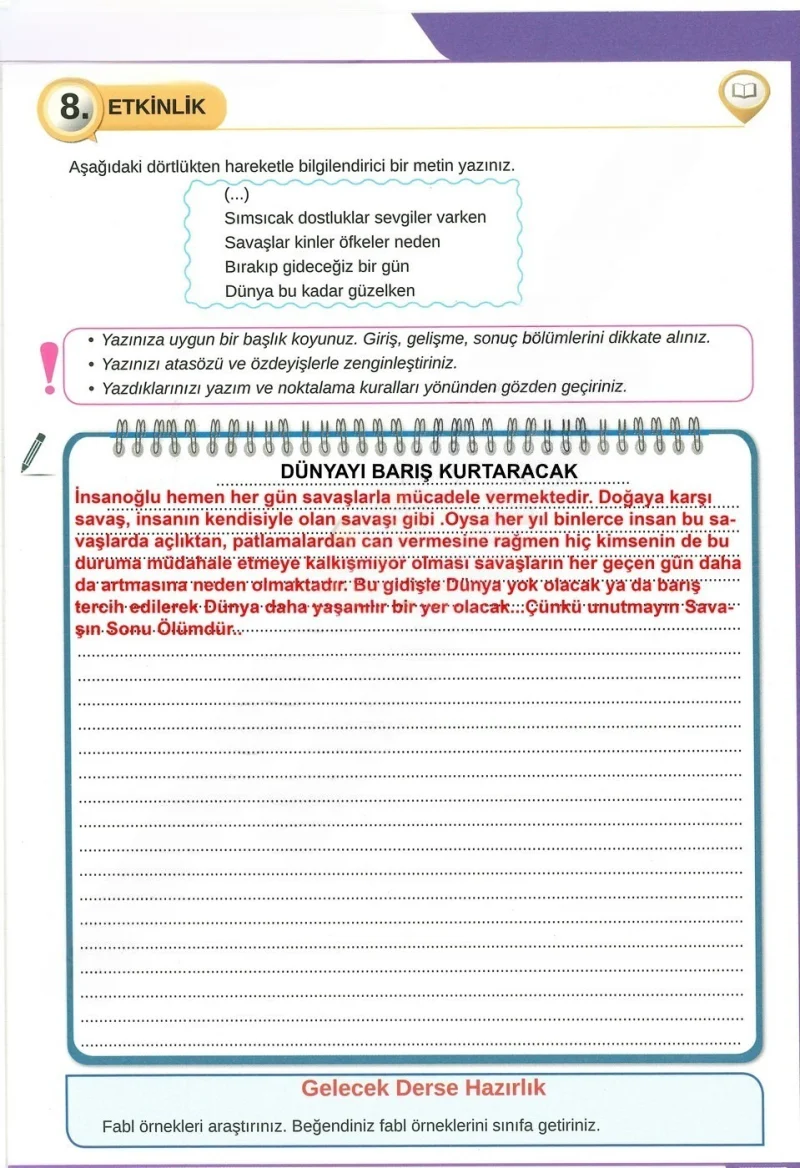 8. ETKİNLİK
Aşağıdaki dörtlükten hareketle bilgilendirici bir metin yazınız.
(...)
Sımsıcak dostluklar sevgiler varken
Savaşlar kinler öfkeler neden
Bırakıp gideceğiz bir gün
Dünya bu kadar güzelken
• Yazınıza uygun bir başlık koyunuz. Giriş, gelişme, sonuç bölümlerini dikkate alınız.
• Yazınızı atasözü ve özdeyişlerle zenginleştiriniz.
• Yazdıklarınızı yazım ve noktalama kuralları yönünden gözden geçiriniz.
DÜNYAYI BARIŞ KURTARACAK
İnsanoğlu hemen her gün savaşlarla mücadele vermektedir. Doğaya karşı
savaş, insanın kendisiyle olan savaşı gibi .Oysa her yıl binlerce insan bu sa-
vaşlarda açlıktan, patlamalardan can vermesine rağmen hiç kimsenin de bu
duruma müdahale etmeye kalkışmıyor olması savaşların her geçen gün daha
da artmasına neden olmaktadır. Bu gidişle Dünya yok olacak ya da barış
tercih edilerek Dünya daha yaşanılır bir yer olacak...Çünkü unutmayın Sava-
şın Sonu Ölümdür..
Gelecek Derse Hazırlık
Fabl örnekleri araştırınız. Beğendiniz fabl örneklerini sınıfa getiriniz.